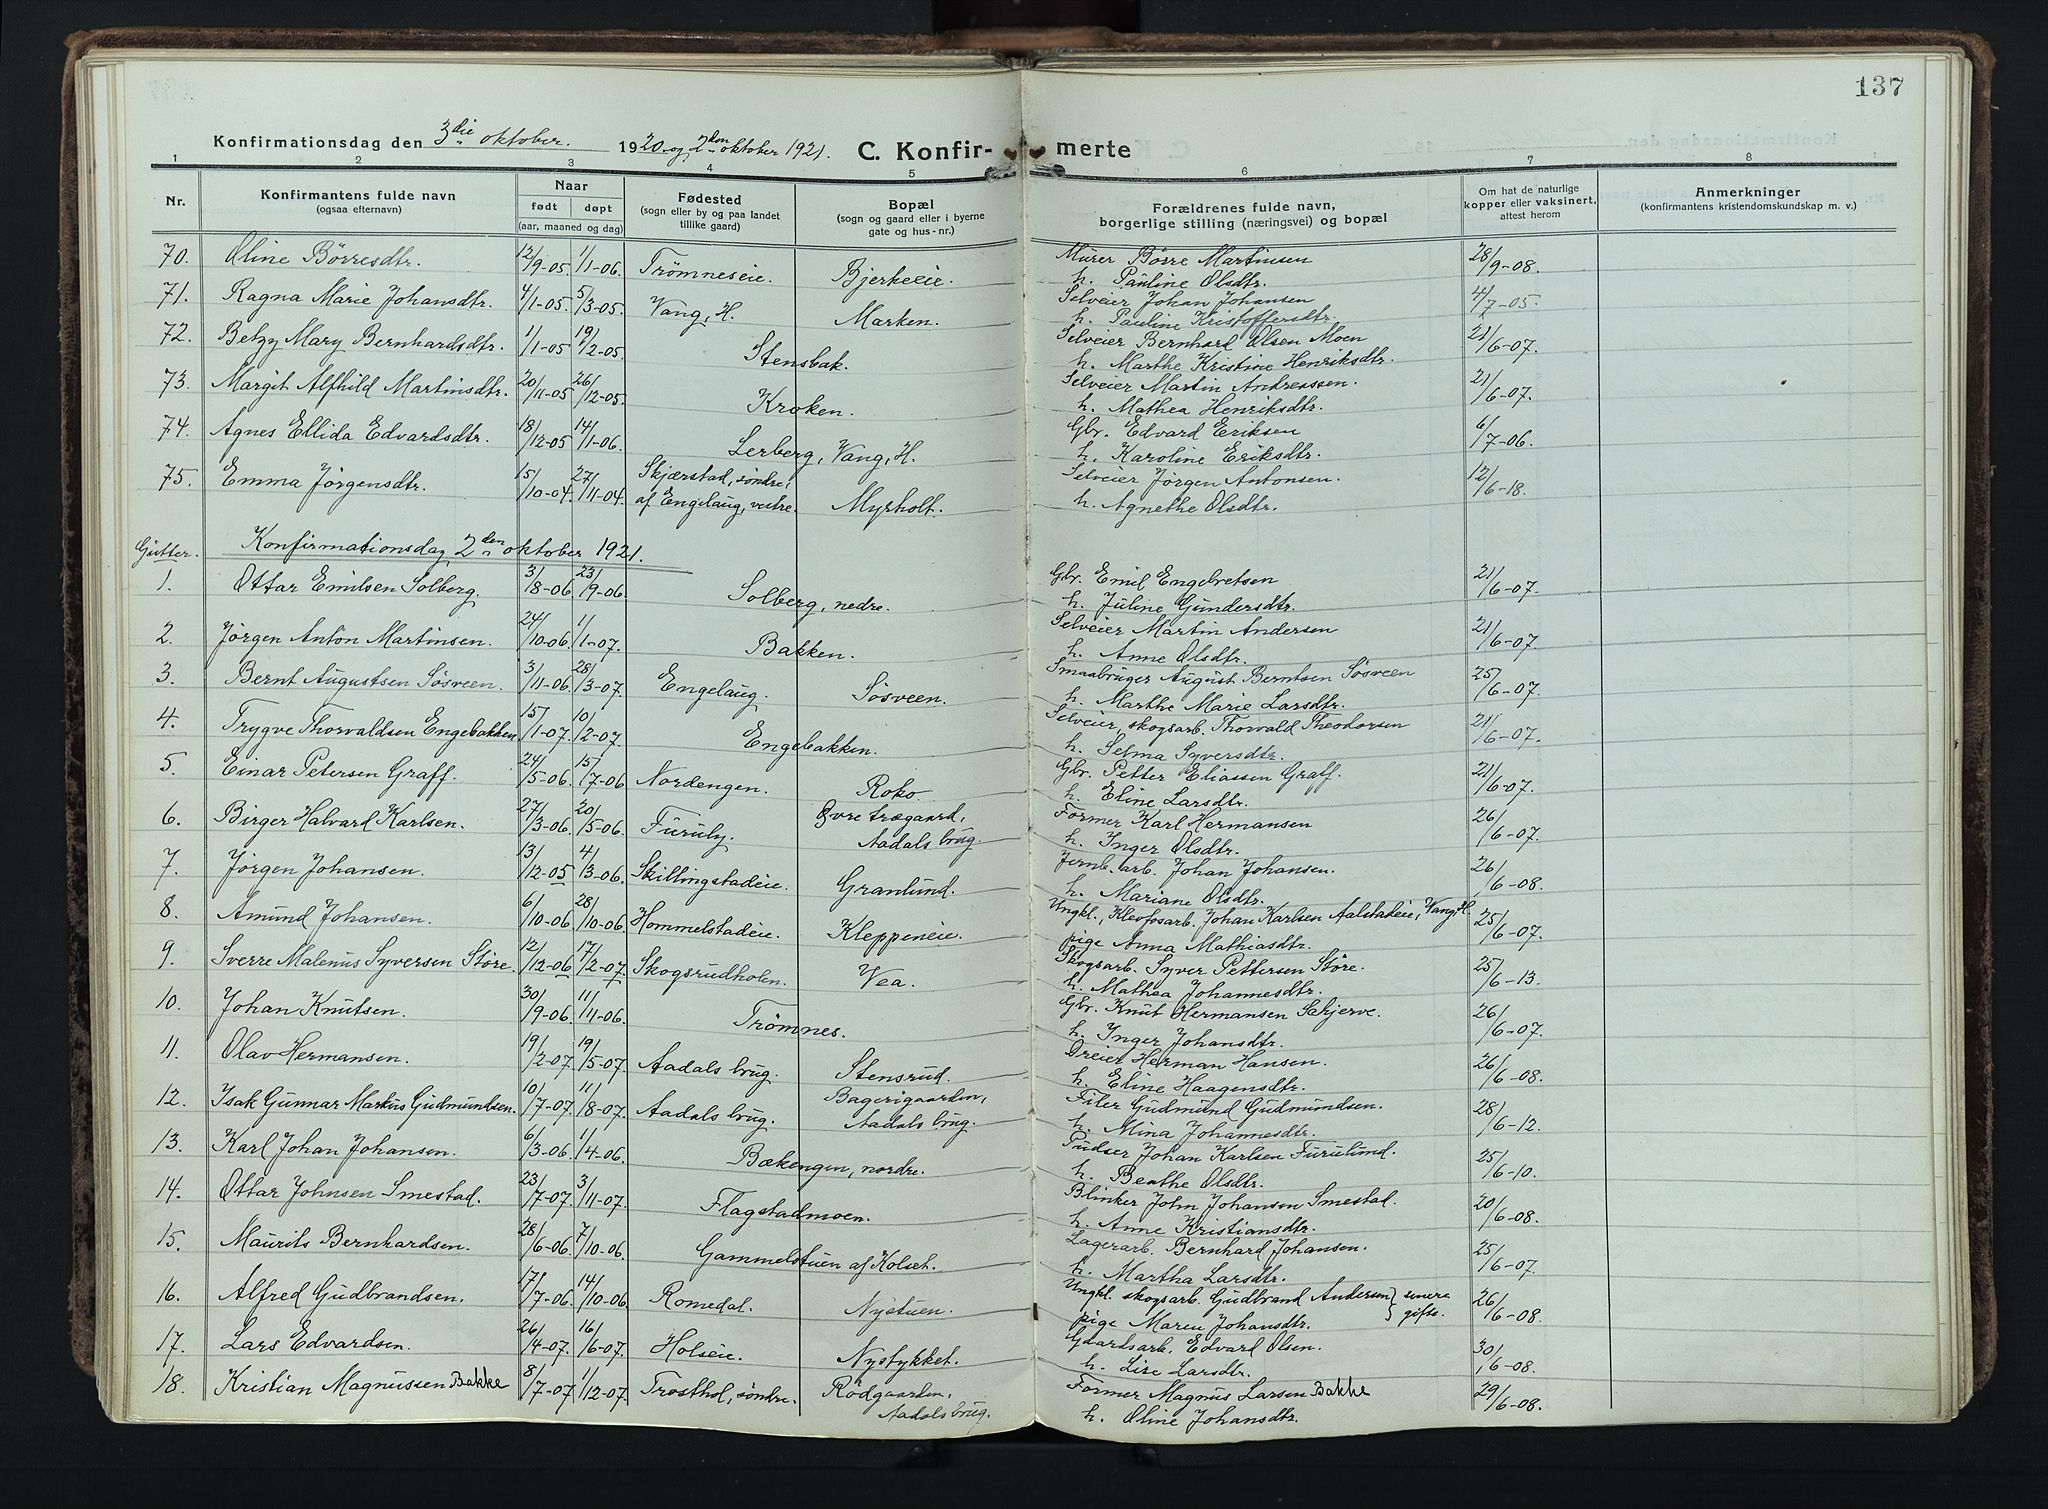 137
Konfirmationsdag den 3die oktober. 1920 og 2den oktober 1921. C. Konfir- merte
1 2 3 4 5 6 7 8
Nr. Konfirmantens fulde navn (ogsaa efternavn) Naar født døpt (aar, maaned og dag) Fødested (sogn eller by og paa landet tillike gaard) Bopæl (sogn og gaard eller i byerne gate og hus-nr.) Forældrenes fulde navn, borgerlige stilling (næringsvei) og bopæl Om hat de naturlige kopper eller vaksinert, attest herom Anmerkninger (konfirmantens kristendomskundskap m. v.)
70. Oline Börresdtr. 12/9-05. 1/1-06. Trömneseie. Bjerkeeie. Murer Börre Martinsen 28/9-08.
h. Pauline Olsdtr.
71. Ragna Marie Johansdtr. 4/1-05. 5/3-05. Vang, H. Marken. Selveier Johan Johansen 4/7-05.
h. Pauline Kristoffersdtr.
72. Betzy Mary Bernhardsdtr. 1/1-05. 19/2-05. Stensbak. Selveier Bernhard Olsen Moen 21/6-07.
h. Marthe Kristine Henriksdtr.
73. Margit Alfhild Martinsdtr. 20/11-05. 26/12-05. Kroken. Selveier Martin Andreassen. 21/6-07.
h. Mathea Henriksdtr.
74. Agnes Ellida Edvardsdtr. 18/12-05. 14/1-06. Lerberg, Vang, H. Gbr. Edvard Eriksen 6/7-06.
h. Karoline Eriksdtr.
75. Emma Jörgensdtr. 15/10-04. 27/11-04. Skjærstad, söndre, Selveier Jörgen Antonsen. 12/6-18.
af Engelaug, vestre. Myrholt. h. Agnethe Olsdtr.
Gutter. Konfirmationsdag 2den oktober 1921.
1. Ottar Emilsen Solberg. 3/8-06. 23/9-06. Solberg, nedre. Gbr. Emil Engebretsen 21/6-07.
h. Juline Gundersdtr.
2. Jörgen Anton Martinsen. 24/10-06. 1/1-07. Bakken. Selveier Martin Andersen 21/6-07.
h. Anne Olsdtr.
3. Bernt Augustsen Sösveen. 3/11-06. 28/3-07. Engelaug. Sösveen. Smaabruger August Berntsen Sösveen 25/6-07.
h. Marthe Marie Larsdtr.
4. Trygve Thorvaldsen Engebakken. 15/1-07. 10/2-07. Engebakken. Selveier, skogsarb. Thorvald Theodorsen 21/6-07.
h. Selma Syversdtr.
5. Einar Petersen Graff. 24/5-06. 15/7-06. Nordengen. Roko. Gbr. Petter Eliassen Graff. 21/6-07.
h. Eline Larsdtr.
6. Birger Halvard Karlsen. 27/3-06. 20/5-06. Furuly. Övre trægaard, Former Karl Hermansen 26/6-07.
Aadals brug. h. Inger Olsdtr.
7. Jörgen Johansen. 13/12-05. 4/3-06. Skillingstadeie. Granlund. Jernb. arb. Johan Johansen. 26/6-08.
h. Mariane Olsdtr.
8. Amund Johansen. 6/10-06. 28/10-06. Hommelstadeie. Kleppeneie. Ungkl., Klevfosarb. Johan Karlsen Aalstadeie, Vang, H. 25/6-07.
pige Anna Mathiasdtr.
9. Sverre Malenus Syversen Störe. 12/12-06. 17/2-07. Skogsrudholen. Vea. Skogsarb. Syver Pettersen Störe. 25/6-13.
h. Mathea Johannesdtr.
10. Johan Knutsen. 30/9-06. 11/11-06. Trömnes. Gbr. Knut Hermansen Schjerve. 26/6-07.
h. Inger Johansdtr.
11. Olav Hermansen. 19/2-07. 19/5-07. Aadals brug. Stensrud. Dreier Herman Hansen. 26/6-08.
h. Eline Haagensdtr.
12. Isak Gunnar Markus Gudmundsen. 10/7-07. 11/8-07. Aadals brug. Bagerigaarden, Filer Gudmund Gudmundsen. 28/6-12.
Aadals brug. h. Mina Johannesdtr.
13. Karl Johan Johansen. 6/3-06. 1/4-06. Bækengen, nordre. Pudser Johan Karlsen Furulund. 25/6-10.
h. Beathe Olsdtr.
14. Ottar Johnsen Smestad. 23/7-07. 3/11-07. Flagstadmoen. Blinker John Johansen Smestad. 20/6-08.
h. Anne Kristiansdtr.
15. Maurits Bernhardsen. 28/6-06. 7/10-06. Gammelstuen af Kolset. Lagerarb. Bernhard Johansen. 25/6-07.
h. Martha Larsdtr.
16. Alfred Gudbrandsen. 17/7-06. 14/10-06. Romedal. Nystuen. Ungkl. skogsarb. Gudbrand Andersen } senere gifte. 26/6-08.
pige Maren Johansdtr.
17. Lars Edvardsen. 26/4-07. 16/6-07. Holseie. Nystykket. Gaardsarb. Edvard Olsen. 30/6-08.
h. Lise Larsdtr.
18. Kristian Magnussen Bakke 8/7-07. 1/12-07. Trosthol, söndre. Rödgaarden, Former Magnus Larsen Bakke 29/6-08.
Aadals brug. h. Oline Johansdtr.